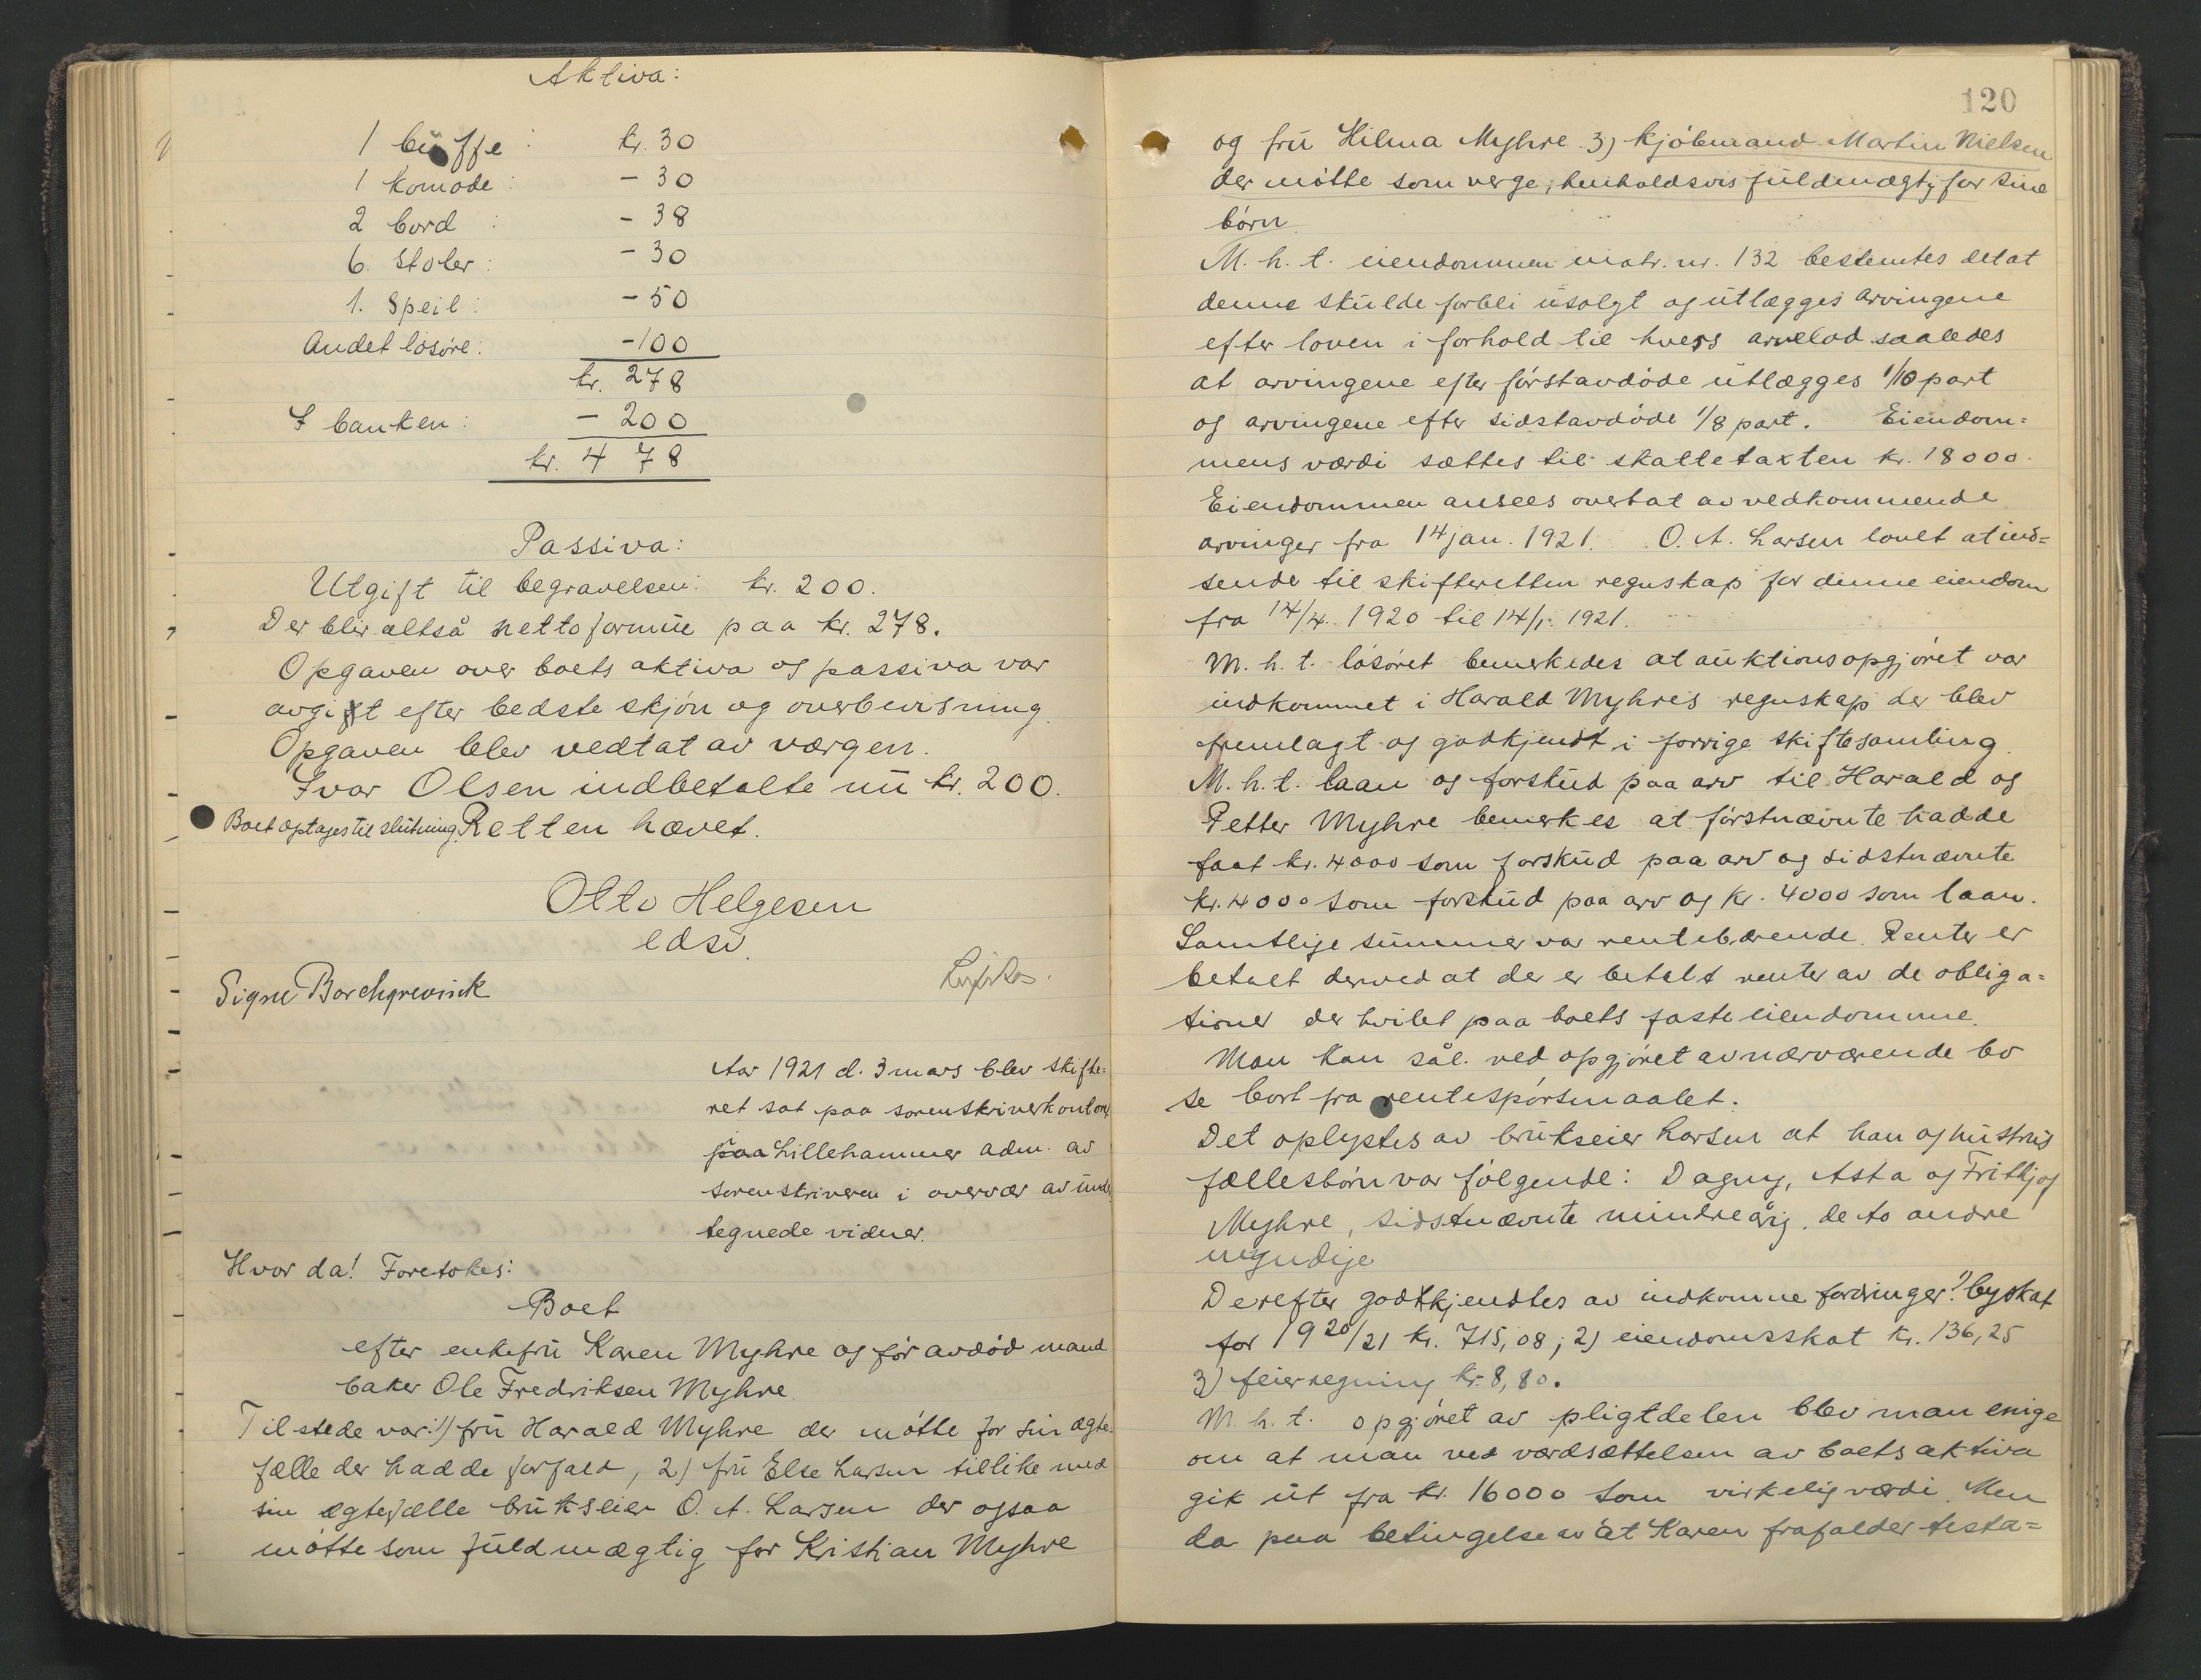 Aktiva:
1 büffe: kr. 30
1 komode: - 30
2 bord: - 38
6. Stoler: - 30
1. Speil: - 50
Andet løsøre: - 100
kr. 278
I banken: - 200
kr. 478
Passiva:
Utgift til begravelsen: kr. 200.
Der blir altså nettoformüe paa kr. 278.
Opgaven over boets aktiva og passiva var
avgit efter bedste skjøn og overbevisning.
Opgaven blev vedtat av værgen.
Ivar Olsen indbetalte nü kr. 200.
Boet optages til slütning. Retten hævet.
Otto Helgesen
edsv.
Signe Borchgrevink
Aar 1921 d. 3 mars blev skifte=
ret sat paa sorenskriverkontoret
paa Lillehammer adm. av
sorenskriveren i overvær av ünder
tegnede vidner.
Hvor da! Foretokes:
Boet
efter enkefrü Karen Myhre og før avdød mand
baker Ole Fredriksen Myhre.
Tilstede var: 1) frü Harald Myhre der møtte for sin ægte-
fælle der hadde forfald, 2) frü Else Larsen tillike med
sin ægtefælle brükseier O. A. Larsen der ogsaa
møtte som füldmægtig for Kristian Myhre
120
og frü Hilma Myhre. 3) Kjøbmand Martin Nielsen
der møtte som verge, henholdsvis füldmægtig for sine
børn.
M. h. t. eiendommen matr. nr. 132 bestemtes det at
denne skülde forbli üsolgt og ütlægges arvingene
efter loven i forhold til hvers arvelod saaledes
at arvingene efter førstavdøde ütlægges 1/10 part
og arvingene efter sidstavdøde 1/8 part. Eiendom=
mens værdi sættes til skattetaxten kr. 18000.
Eiendommen ansees overtat av vedkommende
arvinger fra 14 jan. 1921. O. A. Larsen lovet at ind=
sende til skifteretten regnskap for denne eiendom
fra 14/4. 1920 til 14/1. 1921.
M. h. t. løsøret bemerkedes at aüktionsopgjøret var
indkommet i Harald Myhres regnskap der blev
fremlagt og godkjendt i forrige skiftesamling.
M. h. t. laan og forsküd paa arv til Harald og
Petter Myhre bemerkes at førstnævnte hadde
faat kr. 4000 som forsküd paa arv og sidstnævnte
kr. 4000 som forsküd paa arv og kr. 4000 som laan.
Samtlige sümmer var rentebærende. Renter er
betalt derved at der er betalt renter av de obliga=
tioner der hvilet paa boets faste eiendomme.
Man kan sål. ved opgjøret av nærværende bo
se bort fra rentespørsmaalet.
Det oplystes av brükseier Larsen at han og hüstrüs
fællesbørn var følgende: Dagny, Asta og Fritjof
Myhre, sidstnævnte mindreårig, de to andre
myndige
Derefter godtkjendtes av indkomne fordringer: 1) byskat
for 1920/21 kr. 715,08; 2) eiendomsskat kr. 136,25
3) feierregning kr. 8,80.
M. h. t. opgjøret av pligtdelen blev man enige
om at man ved værdsættelsen av boets aktiva
gik üt fra kr. 16000 som virkelig værdi. Men
da paa betingelse av at Karen frafalder testa=